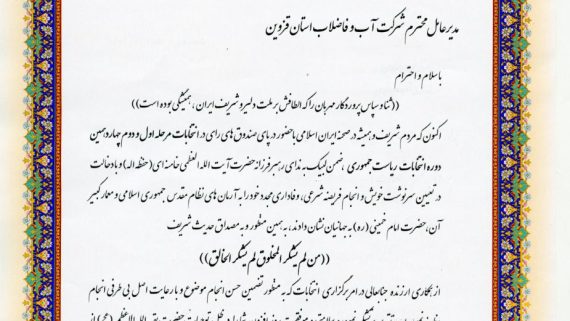 مدیرعامل محترم شرکت آب و فاضلاب استان قزوین
باسلام و احترام
((ثنا و سپاس پروردگار مهربان را که الطافش بر ملت دلیر و شریف ایران ، همیشگی بوده است))
اکنون که مردم شریف و همیشه در صحنه ایران اسلامی با حضور در پای صندوق های رای در انتخابات مرحله اول و دوم چهاردهمین
دوره انتخابات ریاست جمهوری ، ضمن لبیک به ندای رهبر فرزانه حضرت آیت الله العظمی خامنه ای (حفظه اله) و با دخالت
در تعیین سرنوشت خویش و انجام فریضه شرعی، وفاداری مجدد خود را به آرمان های نظام مقدس جمهوری اسلامی و معمار کبیر
آن، حضرت امام خمینی (ره) به جهانیان نشان دادند، به همین منظور و به مصداق حدیث شریف
((من لم یشکر المخلوق لم یشکر الخالق))
از همکاری ارزنده جنابعالی در امر برگزاری انتخابات که به منظور تضمین حسن انجام موضوع و با رعایت اصل بی طرفی انجام